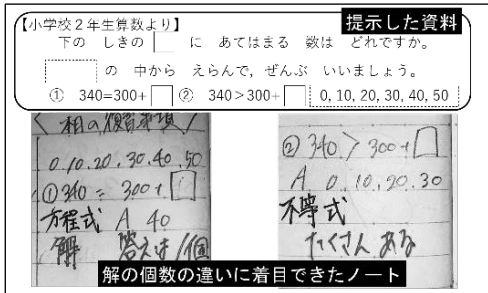 【小学校２年生算数より】
提示した資料
下の しきの に あてはまる 数は どれですか。
の 中から えらんで，ぜんぶ いいましょう。
① 340=300+ ② 340>300+ 0, 10, 20, 30, 40, 50
0, 10, 20, 30, 40, 50
①340 = 300+
方程式 A 40
解 答えは 1個
② 340 > 300+
A 0, 10, 20, 30
不等式
たくさん ある
解の個数の違いに着目できたノート